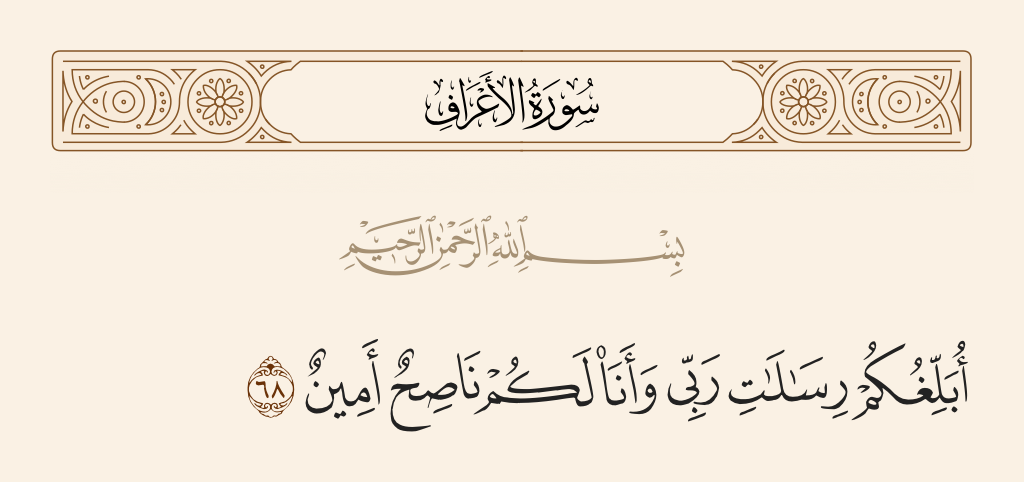 سُورَةُ الأَعْرَافِ
بِسْمِ ٱللَّهِ ٱلرَّحْمَٰنِ ٱلرَّحِيمِ
أُبَلِّغُكُمْ رِسَـٰلَـٰتِ رَبِّى وَأَنَا۠ لَكُمْ نَاصِحٌ أَمِينٌ ٦٨